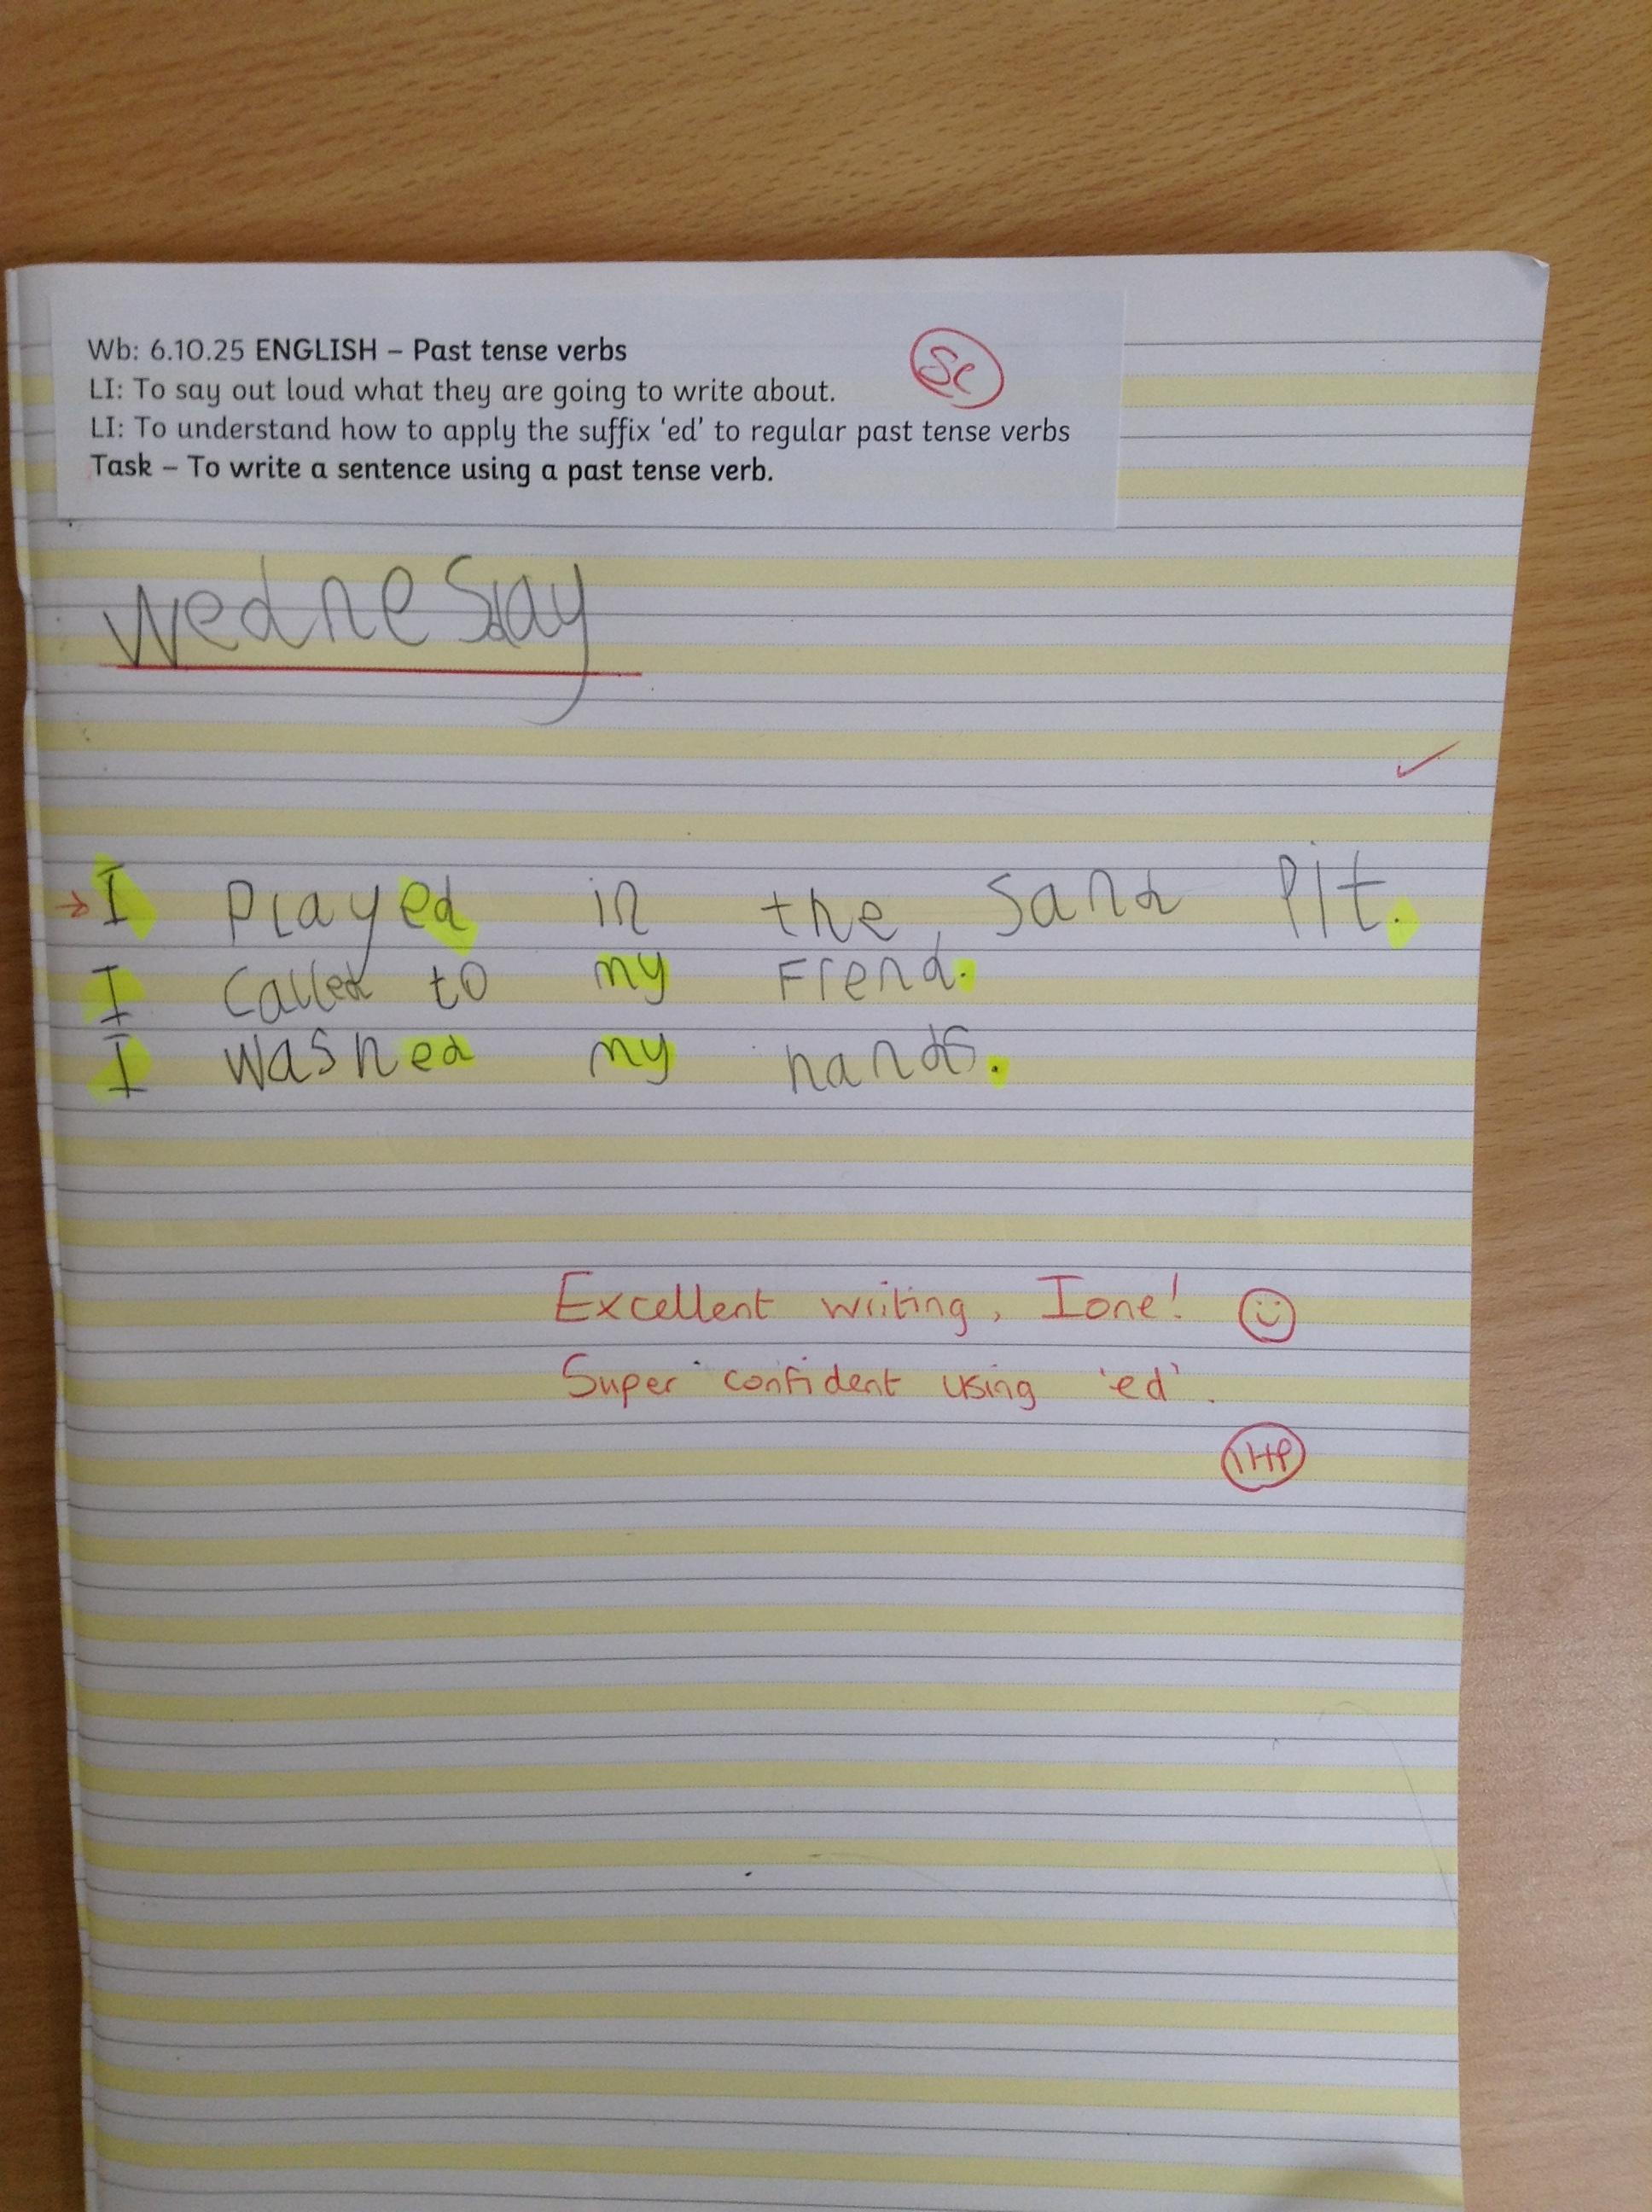 Wb: 6.10.25 ENGLISH – Past tense verbs
SC
LI: To say out loud what they are going to write about.
LI: To understand how to apply the suffix 'ed' to regular past tense verbs
Task – To write a sentence using a past tense verb.
Wednesday
I Played in the Sand Pit.
I Called to my Frend.
I washed my hands.
Excellent writing, Ione!
Super confident using 'ed'.
1HP